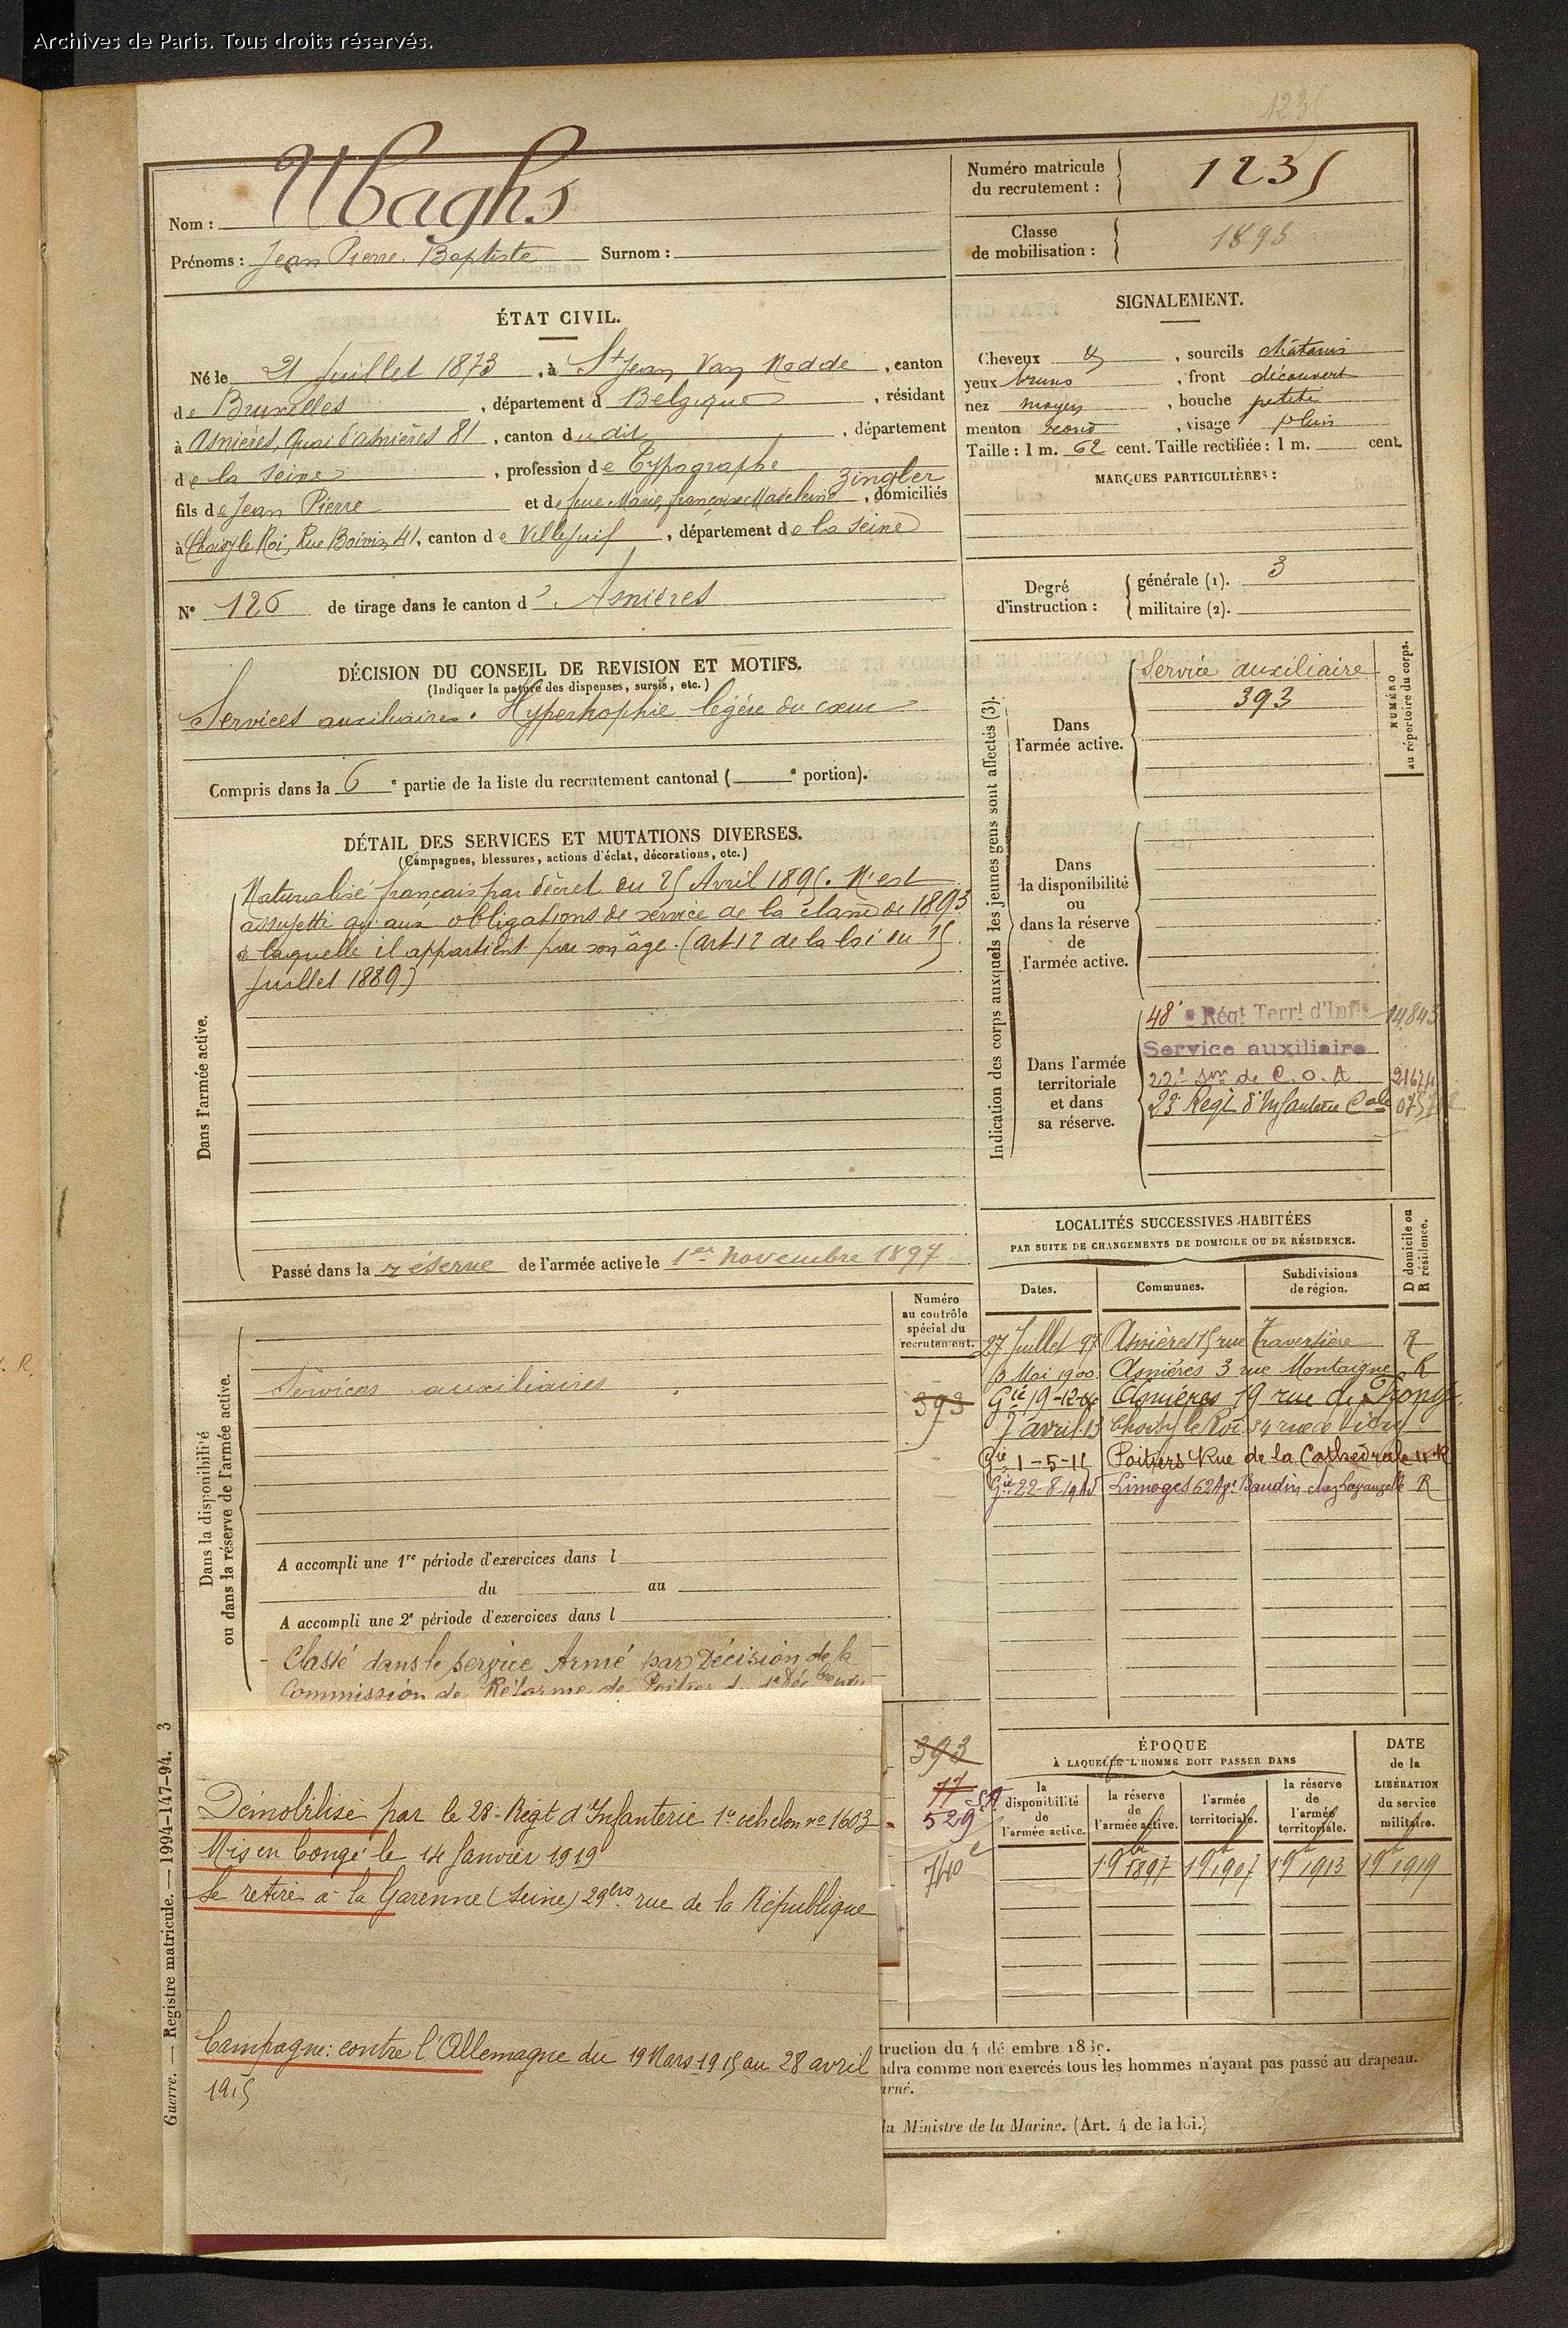 Archives de Paris. Tous droits réservés.
1235
Nom : Ubaghs
Prénoms : Jean Pierre Baptiste Surnom :
Numéro matricule du recrutement : 1235
Classe de mobilisation : 1893
ÉTAT CIVIL.
Né le 21 Juillet 1873, à St Jean Van Nodde, canton
de Bruxelles, département d Belgique, résidant
à Asnières, Quai d'asnières 81, canton dudit, département
de la Seine, profession de Typographe
Zingler
fils de Jean Pierre et de feue Marie, françoise Madeleine, domiciliés
à Choisy le Roi, Rue Boivin 41, canton de Villejuif, département de la Seine
N° 126 de tirage dans le canton d' Asnières
SIGNALEMENT.
Cheveux et, sourcils châtains
yeux bruns, front découvert
nez moyen, bouche petite
menton rond, visage plein
Taille : 1 m. 62 cent. Taille rectifiée : 1 m. cent.
MARQUES PARTICULIÈRES :
Degré d'instruction : générale (1). 3
militaire (2).
DÉCISION DU CONSEIL DE REVISION ET MOTIFS.
(Indiquer la nature des dispenses, sursis, etc.)
Services auxiliaires. Hypertrophie légère du cœur
Compris dans la 6e partie de la liste du recrutement cantonal ( e portion).
DÉTAIL DES SERVICES ET MUTATIONS DIVERSES.
(Campagnes, blessures, actions d'éclat, décorations, etc.)
Dans l'armée active.
Naturalisé français par décret du 25 Avril 1895. N'est
assujetti qu'aux obligations de service de la classe de 1893
à laquelle il appartient par son âge. (art 12 de la loi du 15
Juillet 1889)
Passé dans la réserve de l'armée active le 1er Novembre 1897
Indication des corps auxquels les jeunes gens sont affectés (3).
NUMÉRO au répertoire du corps.
Dans l'armée active.
Service auxiliaire
393
Dans la disponibilité ou dans la réserve de l'armée active.
Dans l'armée territoriale et dans sa réserve.
48e Régt Terrl d'Infie 14,843
Service auxiliaire
22e Son de C.O.A 21674
23e Régt d'Infanterie Cale
LOCALITÉS SUCCESSIVES HABITÉES
PAR SUITE DE CHANGEMENTS DE DOMICILE OU DE RÉSIDENCE.
D domicile ou R résidence.
Dates. Communes. Subdivisions de région.
27 Juillet 97 Asnières 15 rue Traversière R
Mai 1900 Asnières 3 rue Montaigne R
Gie 19-12-06 Asnières 19 rue de
7 avril 13 Choisy le Roi 54 rue de Vitry
Gie 1-5-15 Poitiers Rue de la Cathédrale R
Gie 22-8-1915 Limoges 62 Ave Baudin R
Numéro au contrôle spécial du recrutement.
Dans la disponibilité ou dans la réserve de l'armée active.
Services auxiliaires
393
A accompli une 1re période d'exercices dans l
du au
A accompli une 2e période d'exercices dans l
Classé dans le service Armé par Décision de la
Commission de Réforme de Poitiers du
393
17 SA
529
740
Démobilisé par le 28e Régt d'Infanterie 1er échelon no 1603
Mis en Congé le 14 Janvier 1919
Se retire à la Garenne (Seine) 29bis rue de la République
Campagne: contre l'Allemagne du 19 Mars 1915 au 28 avril
1915
ÉPOQUE
À LAQUELLE L'HOMME DOIT PASSER DANS
la disponibilité de l'armée active.
la réserve de l'armée active.
l'armée territoriale.
la réserve de l'armée territoriale.
DATE de la LIBÉRATION du service militaire.
1 9bre 1897 1 9b 1907 1 9b 1913 1 9b 1919
ruction du 4 décembre 18
ndra comme non exercés tous les hommes n'ayant pas passé au drapeau.
urné.
du Ministre de la Marine. (Art. 4 de la loi.)
Guerre. — Registre matricule. — 1994-147-94. 3
. R.